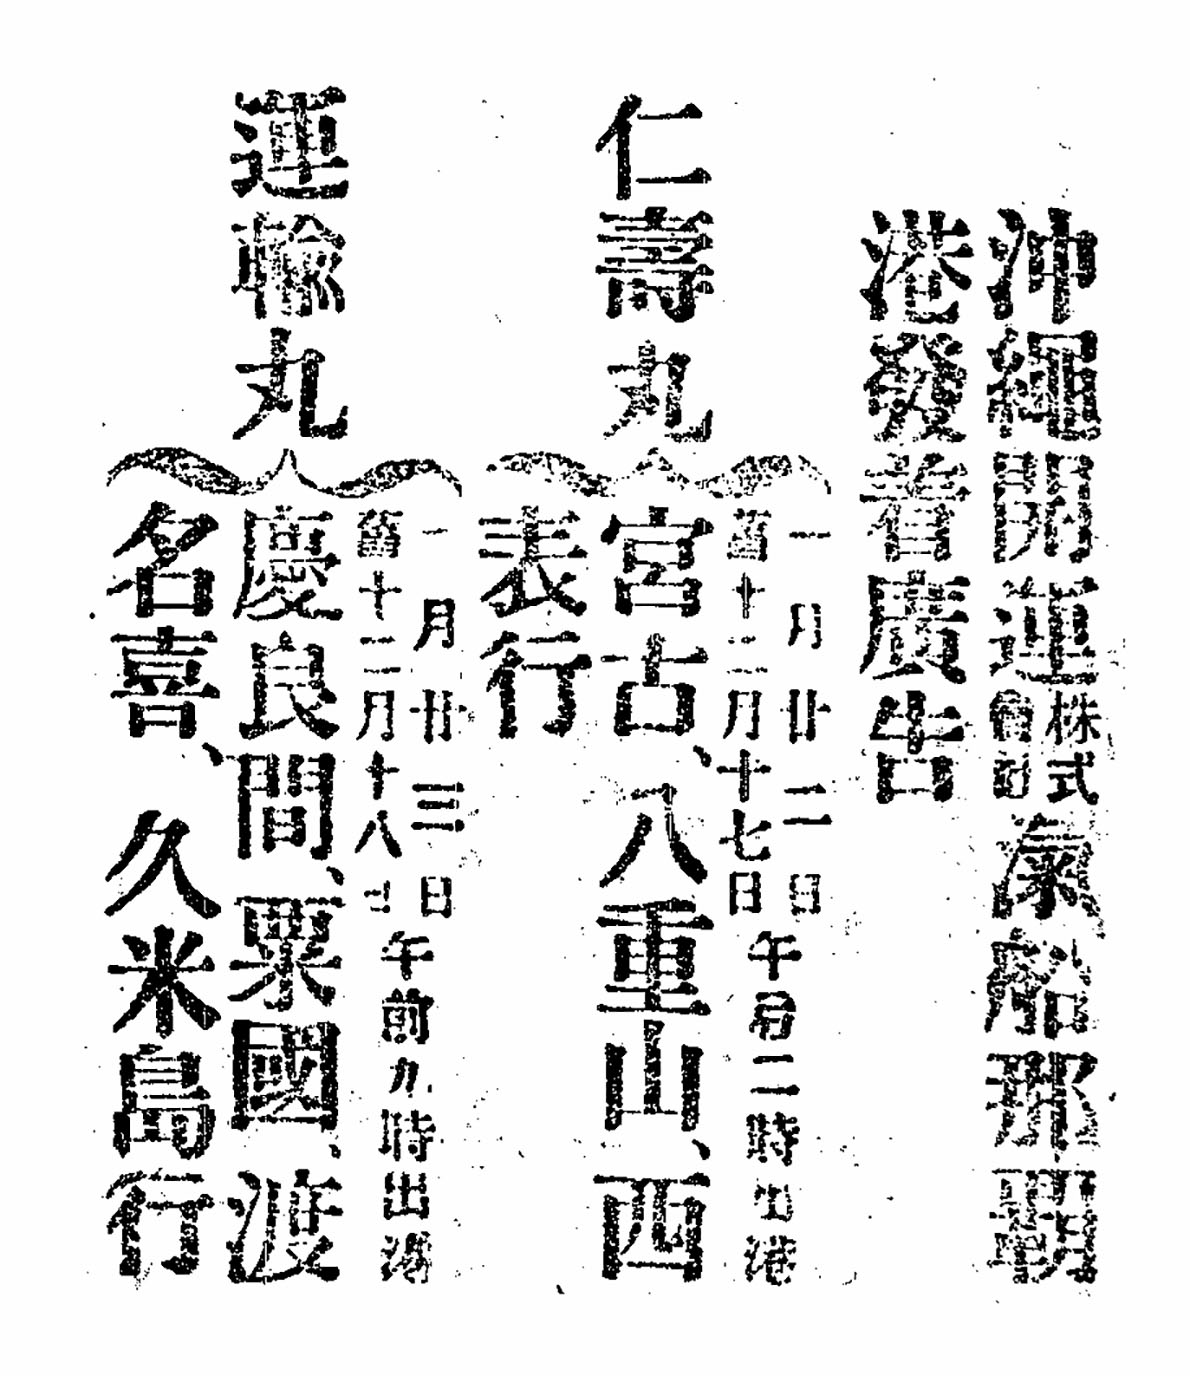 沖繩開運株式會社汽船那覇
港發着廣告
仁壽丸
一月廿二日
舊十二月十七日
午后二時出港
宮古、八重山、西
表行
運輸丸
一月廿三日
舊十二月十八日
午前九時出港
慶良間、粟國、渡
名喜、久米島行